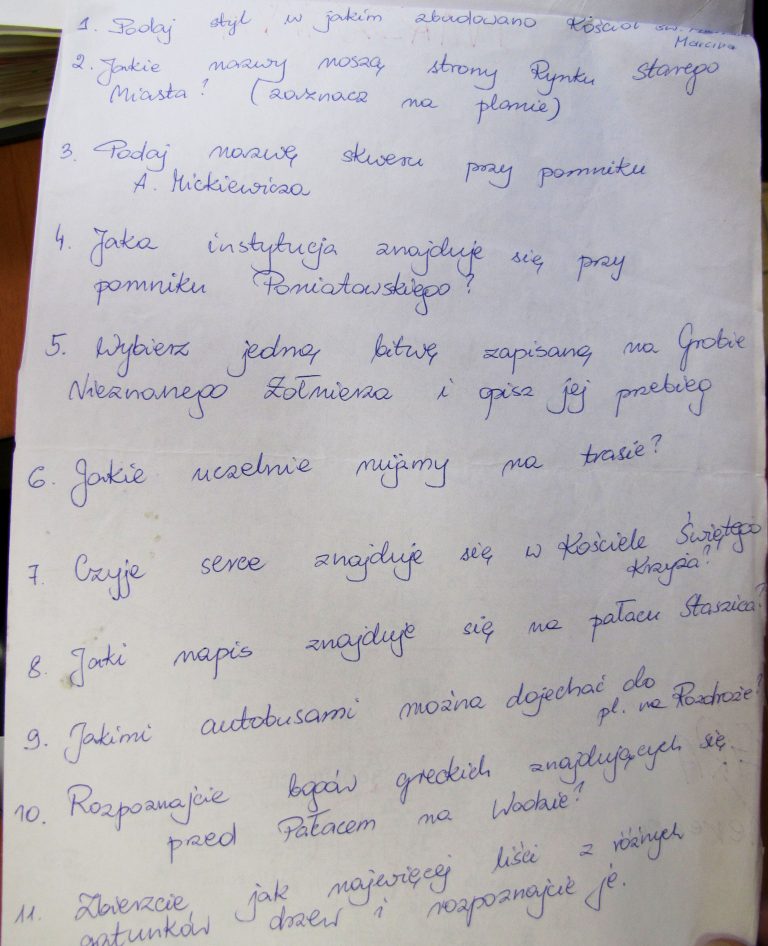 1. Podaj styl w jakim zbudowano Kościół św.
Marcina
2. Jakie nazwy noszą strony Rynku Starego
Miasta? (zaznacz na planie)
3. Podaj nazwę skweru przy pomniku
A. Mickiewicza
4. Jaka instytucja znajduje się przy
pomniku Poniatowskiego?
5. Wybierz jedną bitwę zapisaną na Grobie
Nieznanego Żołnierza i opisz jej przebieg
6. Jakie uczelnie mijamy na trasie?
7. Czyje serce znajduje się w Kościele Świętego
Krzyża?
8. Jaki napis znajduje się na pałacu Staszica?
9. Jakimi autobusami można dojechać do
pl. na Rozdrożu?
10. Rozpoznajcie bogów greckich znajdujących się
przed Pałacem na Wodzie?
11. Zbierzcie jak najwięcej liści z różnych
gatunków drzew i rozpoznajcie je.